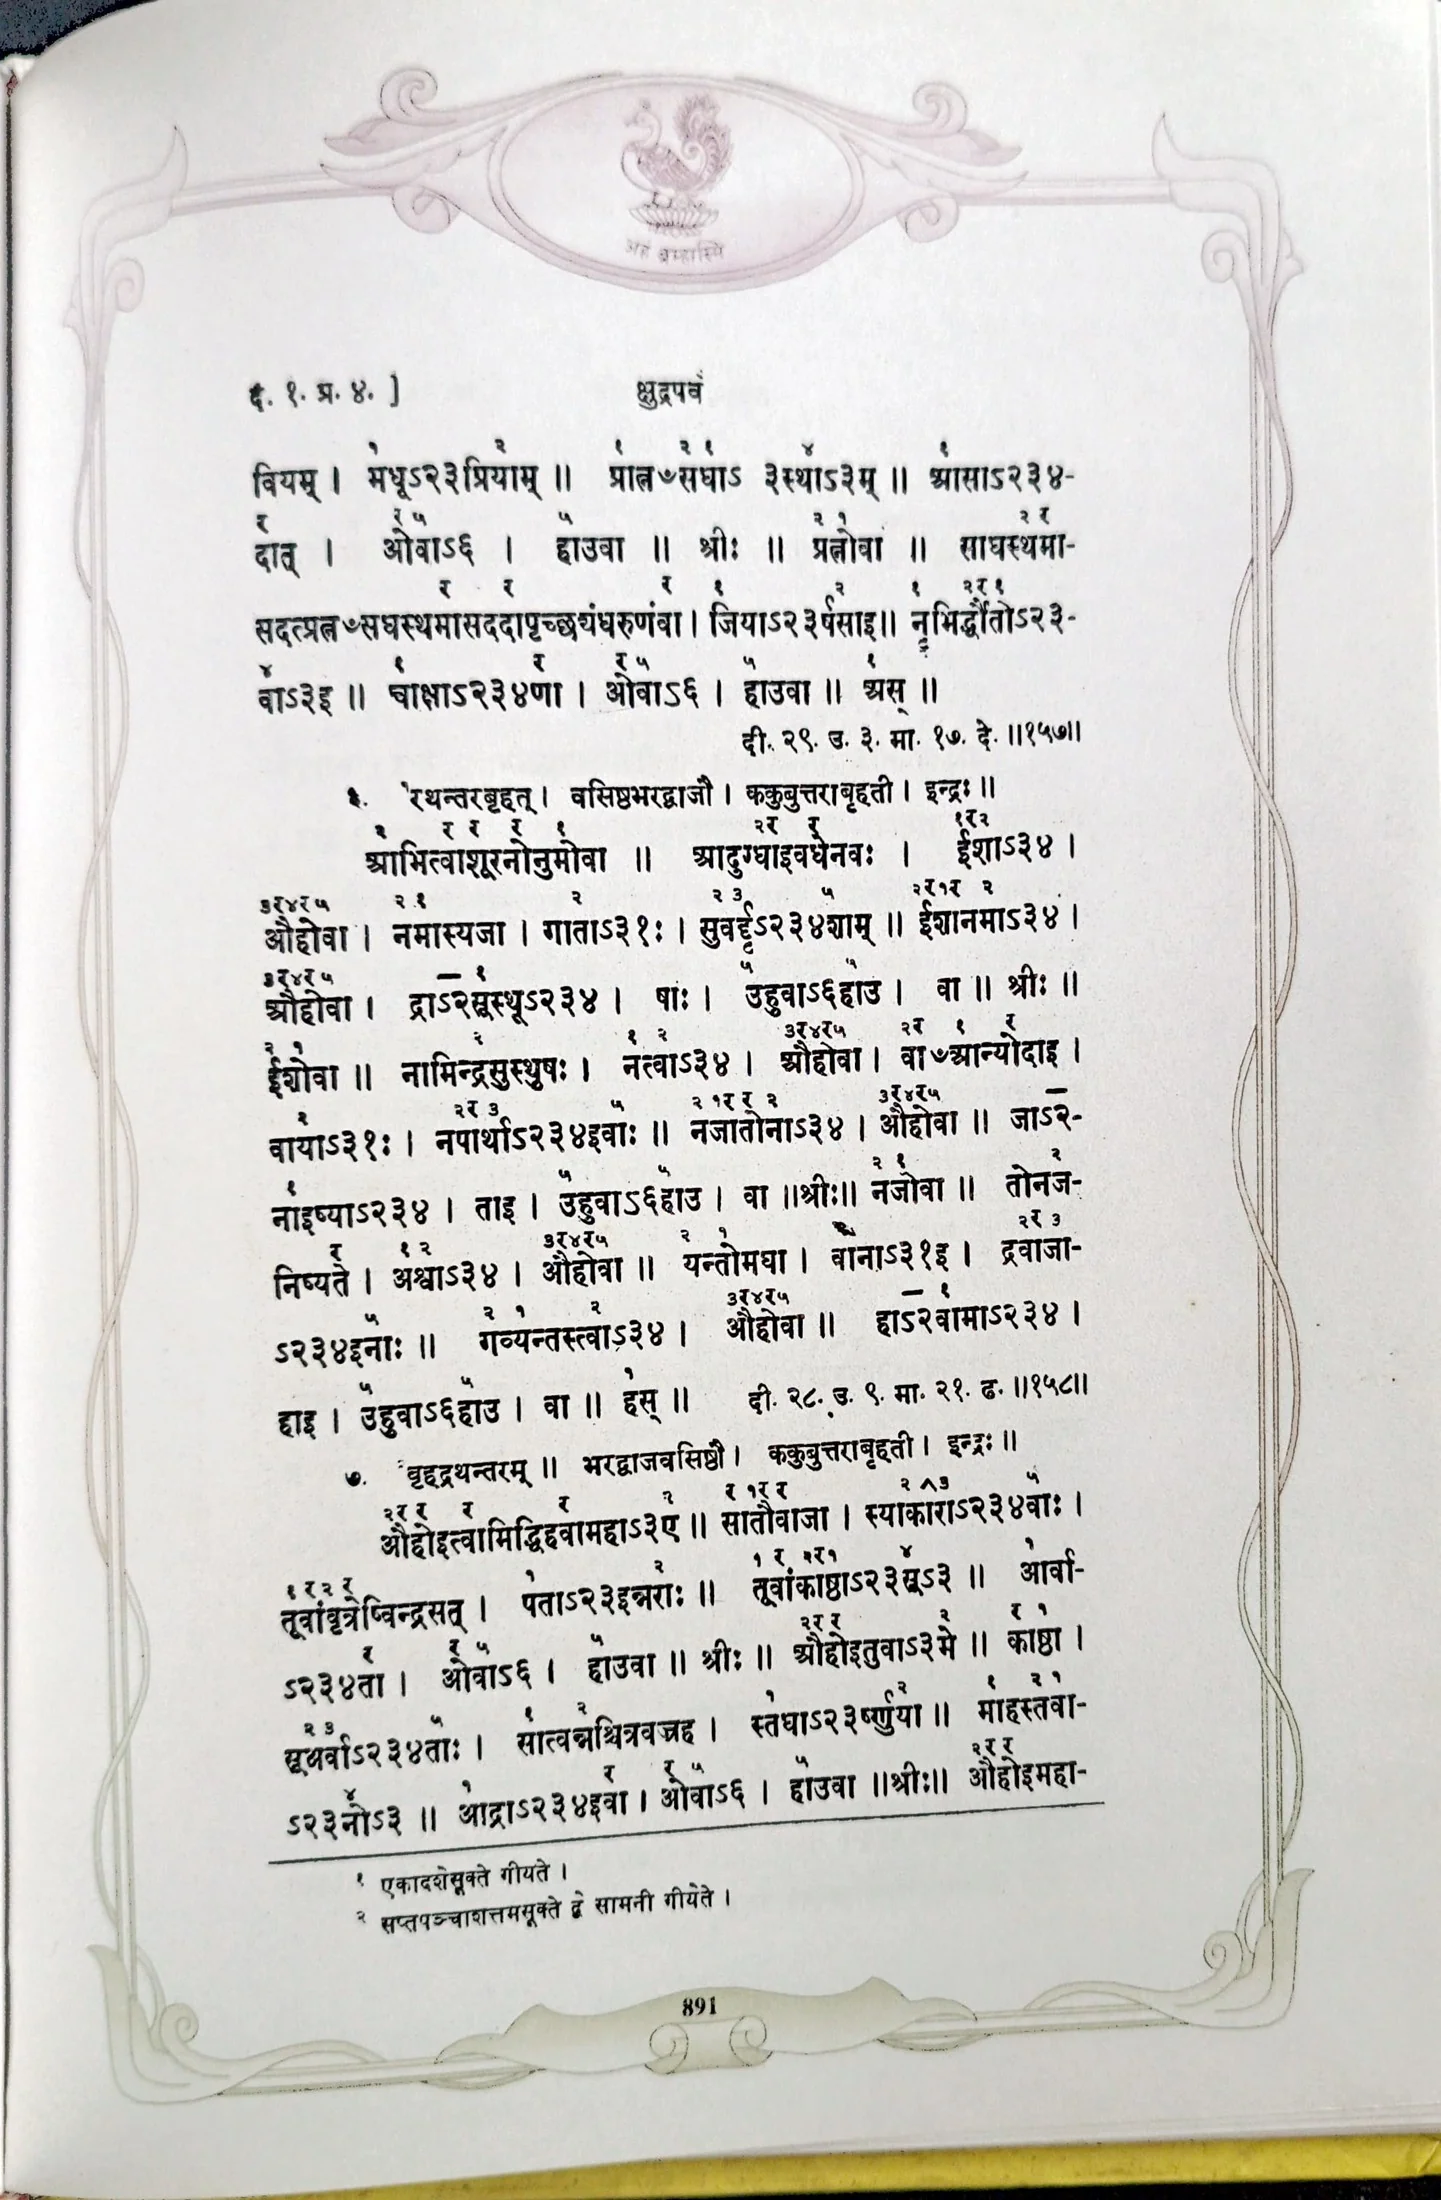 अहं ब्रह्मास्मि
द. १. प्र. ४. ]    क्षुद्रपर्व
वियम् । मधूऽ२३प्रियाम् ॥ प्रात्नꣳसधाऽ ३स्थाऽ३म् ॥ आसाऽ२३४-
दात् । ओवाऽ६ । हाउवा ॥ श्रीः ॥ प्रत्नोवा ॥ साधस्थमा-
सदत्प्रत्नꣳसधस्थमासददापृच्छ्यंधरुणंवा । जियाऽ२३र्षसाइ ॥ नृभिर्द्धौतोऽ२३-
वाऽ३इ ॥ चाक्षाऽ२३४णा । ओवाऽ६ । हाउवा ॥ अस् ॥
दी. २९. उ. ३. मा. १७. दे. ॥१५७॥
रथन्तरबृहत् । वसिष्ठभरद्वाजौ । ककुबुत्तराबृहती । इन्द्रः ॥
आभित्वाशूरनोनुमोवा ॥ आदुग्धाइवधेनवः । ईशाऽ३४ ।
औहोवा । नमास्यजा । गाताऽ३१ः । सुवर्दृऽ२३४शाम् ॥ ईशानमाऽ३४ ।
औहोवा । द्राऽ२सूस्थूऽ२३४ । षाः । उहुवाऽ६हाउ । वा ॥ श्रीः ॥
ईशोवा ॥ नामिन्द्रसुस्थुषः । नत्वाऽ३४ । औहोवा । वाꣳआन्योदाइ ।
वायाऽ३१ः । नपार्थाऽ२३४इवाः ॥ नजातोनाऽ३४ । औहोवा ॥ जाऽ२-
नाइष्याऽ२३४ । ताइ । उहुवाऽ६हाउ । वा ॥श्रीः॥ नजोवा ॥ तोनज-
निष्यते । अश्वाऽ३४ । औहोवा ॥ यन्तोमघा । वानाऽ३१इ । द्रवाजा-
ऽ२३४इनाः ॥ गव्यन्तस्त्वाऽ३४ । औहोवा ॥ हाऽ२वामाऽ२३४ ।
हाइ । उहुवाऽ६हाउ । वा ॥ हस् ॥ दी. २८. उ. ९. मा. २१. ढ. ॥१५८॥
७. बृहद्रथन्तरम् ॥ भरद्वाजवसिष्ठौ । ककुबुत्तराबृहती । इन्द्रः ॥
औहोइत्वामिद्धिहवामहाऽ३ए ॥ सातौवाजा । स्याकाराऽ२३४वाः ।
तूवांवृत्रेष्विन्द्रसत् । पताऽ२३इन्नराः ॥ तूवांकाष्ठाऽ२३सूऽ३ ॥ आर्वा-
ऽ२३४ता । ओवाऽ६ । हाउवा ॥ श्रीः ॥ औहोइतुवाऽ३मे ॥ काष्ठा ।
सूअर्वाऽ२३४ताः । सात्वन्नश्चित्रवज्रह । स्तधाऽ२३र्ष्णुया ॥ माहस्तवा-
ऽ२३नोऽ३ ॥ आद्राऽ२३४इवा । ओवाऽ६ । हाउवा ॥श्रीः॥ औहोइमहा-
१ एकादशेसूक्ते गीयते ।
२ सप्तपञ्चाशत्तमसूक्ते द्वे सामनी गीयेते ।
891